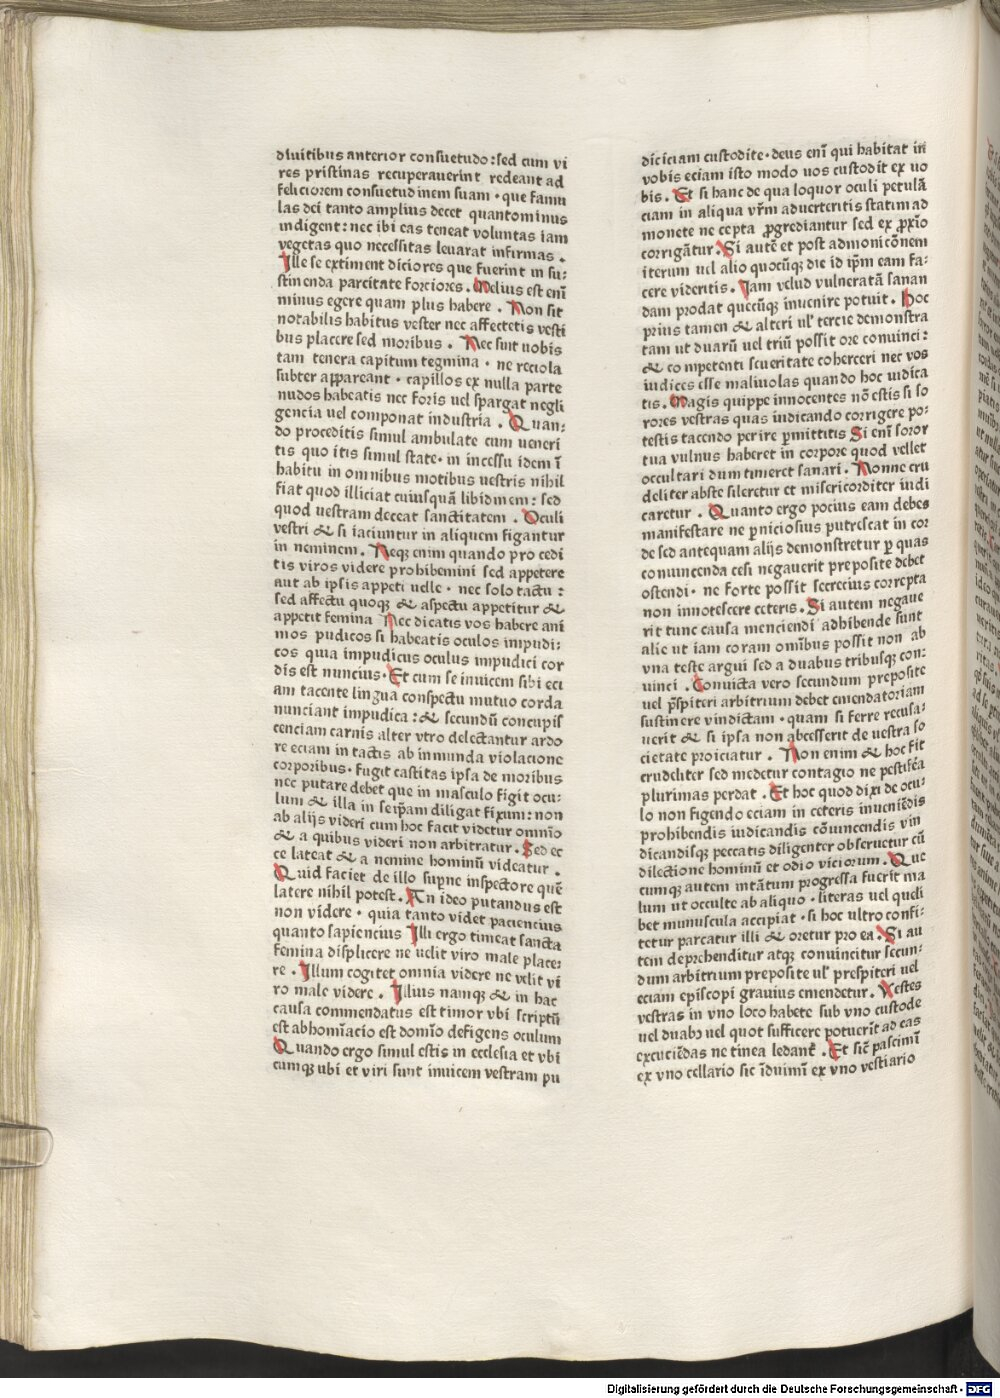 diuitibus anterior consuetudo: sed cum vi
res pristinas recuperauerint redeant ad
feliciorem consuetudinem suam · que famu
las dei tanto amplius decet quantominus
indigent: nec ibi eas teneat voluntas iam
vegetas quo necessitas leuarat infirmas .
Ille se extiment diciores que fuerint in su:
stinenda parcitate forciores . Melius est enī
minus egere quam plus habere . Non sit
notabilis habitus vester nec affectetis vesti
bus placere sed moribus . Nec sint uobis
tam tenera capitum tegmina · ne reciola
subter appareant · capillos ex nulla parte
nudos habeatis nec foris uel spargat negli
gencia uel componat industria . Quan:
do proceditis simul ambulate cum ueneri
tis quo itis simul state · in incessu idem ī
habitu in omnibus motibus uestris nihil
fiat quod illiciat cuiusquā libidinem: sed
quod uestram deceat sanctitatem . Oculi
vestri & si iaciuntur in aliquem figantur
in neminem . Neqꝫ enim quando pro cedi
tis viros videre prohibemini sed appetere
aut ab ipsis appeti uelle · nec solo tactu :
sed affectu quoqꝫ & aspectu appetitur &
appetit femina Nec dicatis vos habere ani
mos pudicos si habeatis oculos impudi:
cos quia impudicus oculus impudici cor
dis est nuncius · Et cum se inuicem sibi eci
am tacente lingua conspectu mutuo corda
nunciant impudica : & secundū concupis
cenciam carnis alter vtro delectantur ardo
re eciam in tactis ab inmunda violacione
corporibus · fugit castitas ipsa de moribus
nec putare debet que in masculo figit ocu:
lum & illa in se ip̄am diligat fixum: non
ab alijs videri cum hoc facit videtur omnīo
& a quibus videri non arbitratur . Sed ec
ce lateat & a nemine hominū videatur .
Quid faciet de illo sup̄ne inspectore quē
latere nihil potest . An ideo putandus est
non videre · quia tanto videt paciencius
quanto sapiencius Illi ergo timeat sancta
femina displicere ne uelit viro male place:
re . Illum cogitet omnia videre ne velit vi
ro male videre . Illius namqꝫ & in hac
causa commendatus est timor vbi scriptū
est abhomīacio est domīo defigens oculum
Quando ergo simul estis in ecclesia et vbi
cumqꝫ ubi et viri sunt inuicem vestram pu
diciciam custodite · deus enī qui habitat in
vobis eciam isto modo uos custodit ex uo
bis . Et si hanc de qua loquor oculi petulā
ciam in aliqua vr̄m aduerteritis statim ad
monete ne cepta ꝓgrediantur sed ex ꝓxīo
corrigātur . Si autē et post admonicōnem
iterum uel alio quocūqꝫ die id ip̄m eam fa:
cere videritis . Iam velud vulneratā sanan
dam prodat quecūqꝫ inuenire potuit . Hoc
prius tamen & alteri ul' tercie demonstra
tam ut duarū uel triū possit ore conuinci:
& co mpetenti seueritate coherceri nec vos
iudices esse maliuolas quando hoc iudica
tis . Magis quippe innocentes nō estis si so
rores vestras quas iudicando corrigere po:
testis tacendo perire ꝑmittitis Si enī soror
tua vulnus haberet in corpore quod vellet
occultari dum timeret sanari . Nonne cru
deliter abste sileretur et misericorditer iudi
caretur . Quanto ergo pocius eam debes
manifestare ne ꝑniciosius putrescat in cor
de sed antequam alijs demonstretur ꝑ quas
conuincenda cesi negauerit preposite debet
ostendi · ne forte possit secrecius correpta
non innotescere ceteris . Si autem negaue
rit tunc causa menciendi adhibende sunt
alie ut iam coram omībus possit non ab
vna teste argui sed a duabus tribusqꝫ con:
uinci . Conuicta vero secundum preposite
uel p̄spiteri arbitrium debet emendatoriam
sustinere vindictam · quam si ferre recusa:
uerit & si ipsa non abcesserit de uestra so
cietate proiciatur . Non enim & hoc fit
crudeliter sed medetur contagio ne pestifēa
plurimas perdat . Et hoc quod dixi de ocu:
lo non figendo eciam in ceteris inueniēdis
prohibendis iudicandis cōuincendis vin
dicandisqꝫ peccatis diligenter obseruetur cū
dilectione hominū et odio viciorum . Que
cumqꝫ autem intātum progressa fuerit ma
lum ut occulte ab aliquo · literas uel queli
bet munuscula accipiat · si hoc ultro confi:
tetur parcatur illi & oretur pro ea . Si au
tem deprehenditur atqꝫ conuincitur secun:
dum arbitrium preposite ul' prespiteri uel
eciam episcopi grauius emendetur . Vestes
vestras in vno loco habete sub vno custode
uel duabꝫ uel quot sufficere potuerīt ad eas
excuciēdas ne tinea ledant̄ . Et sic̄ pascimī
ex vno cellario sic īduimī ex vno vestiario
Digitalisierung gefördert durch die Deutsche Forschungsgemeinschaft · DFG